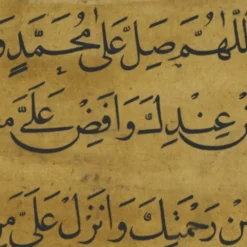 اللّٰهُمَّ صَلِّ عَلٰى مُحَمَّدٍ
مِنْ عِنْدِكَ وَاَفِضْ عَلَىَّ مِنْ
مِنْ رَحْمَتِكَ وَاَنْزِلْ عَلَىَّ مِنْ